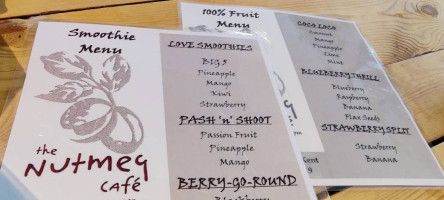 Smoothie
Menu
the
Nutmeg
Café
LOVE SMOOTHIES
BIG 5
Pineapple
Mango
Kiwi
Strawberry
PASH 'n' SHOOT
Passion Fruit
Pineapple
Mango
BERRY-GO-ROUND
Blackberry
100% Fruit
Menu
COCO LOCO
Smoothie
Mango
Pineapple
Lime
Mint
BLUEBERRY THRILL
Blueberry
Raspberry
Banana
Flax Seeds
STRAWBERRY SPLIT
Strawberry
Banana